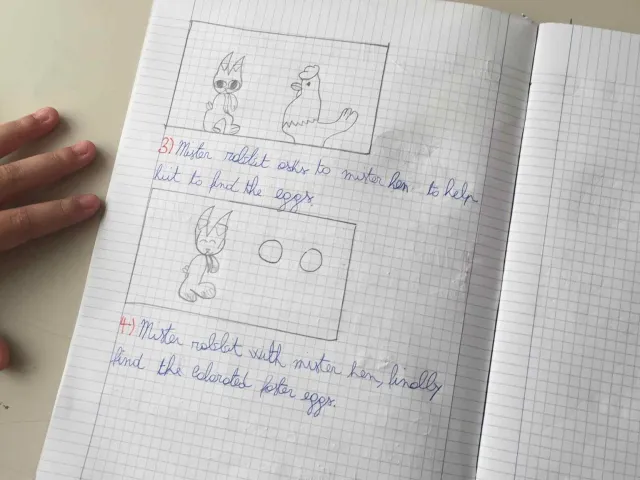 3) Mister rabbit asks to mister hen to help
hiit to find the eggs
4) Mister rabbit with mister hen, finally
find the colorated faster eggs.